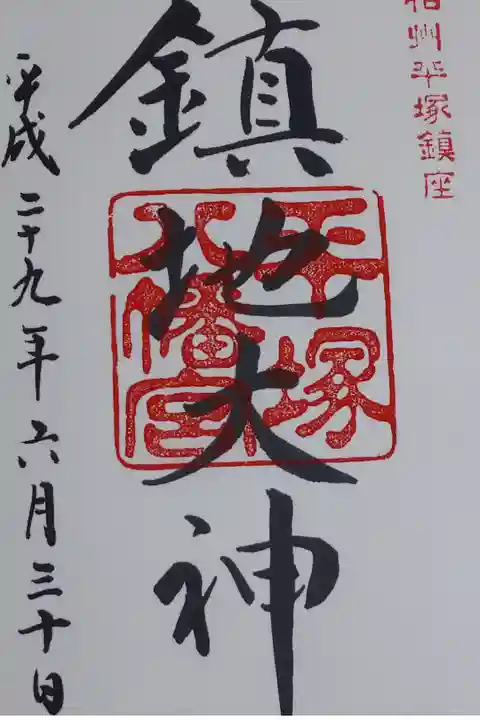 相州平塚鎮座
鎮地大神
平塚
八幡宮
平成二十九年六月三十日